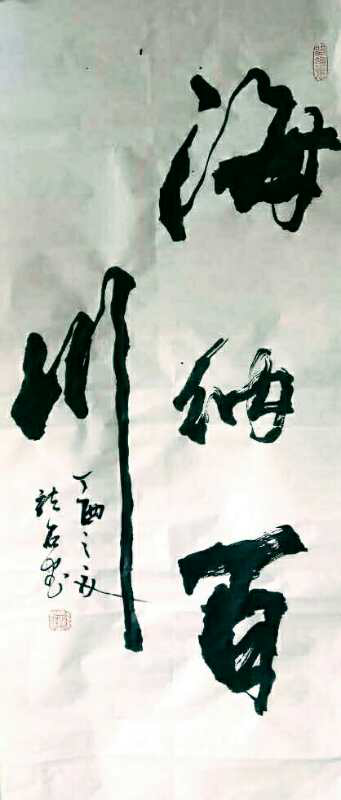 海纳百
川
丁酉之
石书